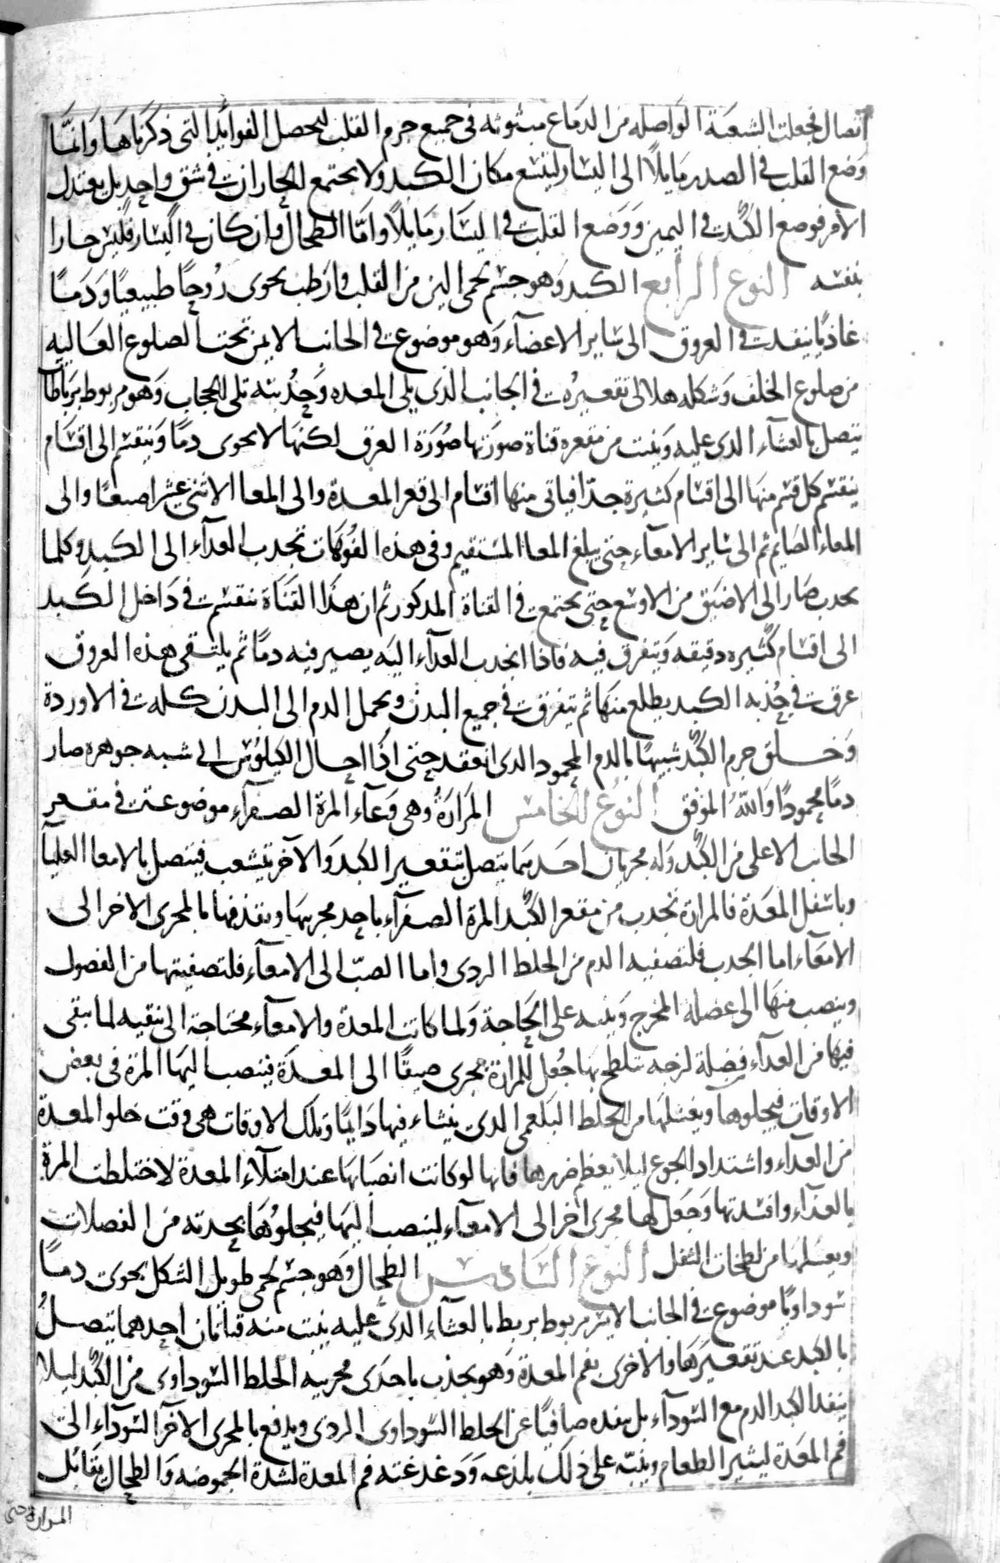 اتصال فجعلت الشعبة الواصله من الدماغ مبثوثه في جميع جرم القلب لتحصل الفوائد التي ذكرناها وانما
وضع القلب في الصدر مايلا الى اليسار ليتسع مكان الكبد ولا يجتمع الحاران في شق واحد بل يعتدل
الامر فوضع الكبد في اليمين ووضع القلب في اليسار مايلا واما الطحال وان كان في اليسار فليس حارا
بنفسه النوع الرابع الكبد وهو جسم لحمى الين من القلب وارطب يحوى روحا طبيعيا ودما
غاذيا ينفذ في العروق الى ساير الاعضاء وهو موضوع في الجانب الايمن تحت الضلوع العاليه
من ضلوع الخلف وشكله هلالى تقعيره في الجانب الذى يلى المعده وحدبته تلى الحجاب وهو مربوط برباطا
يتصل بالغشاء الدى عليه وينبت من مقعره قناة صورتها صورة العرق لكنها لا يحوى دما وينقسم الى اقسام
ينقسم كل قسم منها الى اقسام كثيرة جدا فياتى منها اقسام الى قعر المعدة والى المعا الاثنى عشر اصبعا والى
المعاء الصايم ثم الى ساير الامعاء حتى يبلغ المعا المستقيم وفى هذه الفوهات تجدب الغدآء الى الكبد وكلما
يجدب صار الى الاضيق من الاوسع حتى يجتمع في القناة المدكور ثم ان هذا القناة ينقسم في داخل الكبد
الى اقسام كثيره دقيقه ويتفرق فيه فاذا انجدب الغدآء اليه يصير فيه دما ثم يلتقى هذه العروق
عرق في حدبة الكبد يطلع منها ثم يتفرق في جميع البدن ويحمل الدم الى البدن كله في الاوردة
وخلق جرم الكبد شبيها بالدم المجمود الدى انعقد حتى اذا احال الكيلوس الى شبه جوهره صار
دما محمودا والله الموفق النوع الخامس المرارة وهى وعآء المرة الصفرآء موضوعة في مقعر
الجانب الاعلى من الكبد وله مجريان احدهما يتصل بتقعير الكبد والآخر يتشعب فيتصل بالامعا العليآ
وباسفل المعدة فالمرارة تجدب من مقعر الكبد المرة الصفرآء باحد مجريها ويقذفها بالمجرى الاخر الى
الامعآء اما الجدب فلتصفيه الدم من الخلط الردى واما الصب الى الامعآء فلتصفيتها من الفضول
وينصب منها الى عضلة المخرج وينبه على الحاجة ولما كانت المعدة والامعآء محتاجة الى تنقيه لما يبقى
فيها من الغدآء فضلة لزجه تتلطخ بها جعل للمرارة مجرى ضيقا الى المعدة ينصب اليها المرة فى بعض
الاوقات فيجلوها ويغسلها من الخلط البلغمى الدى ينشاء فيها دايما وتلك الاوقات هى وقت خلو المعدة
من الغدآء واشتداد الجوع ليلا يعظم ضررها فانها لو كانت انصبابها عند امتلآء المعدة لاختلطت المرة
بالغدآء وافسدتها وجعل لها مجرى آخر الى الامعآء لينصب اليها فيجلوها بحدته من الفضلات
ويغسلها من لطخات الثفل النوع السادس الطحال وهو جسم لحمى طويل الشكل يحوى دما
سوداويا موضوع في الجانب الايسر مربوط بربط بالغشاء الدى عليه ينبت منه قناتان احدهما يتصل
بالكبد عند تقعيرها والاخرى بفم المعدة وهو يجذب باحدى مجريه الخلط السوداوى من الكبد ليلا
ينفد الكبد الدم مع السودآء بل ينفده صافيا عن الخلط السوداوى الردى ويدفع بالمجرى الآخر السودآء الى
فم المعدة ليثير الطعام وينبه على ذلك بلدعه ودغدغته فم المعدة لشدة الحموضه والطحال يقابل
المرارة حتى